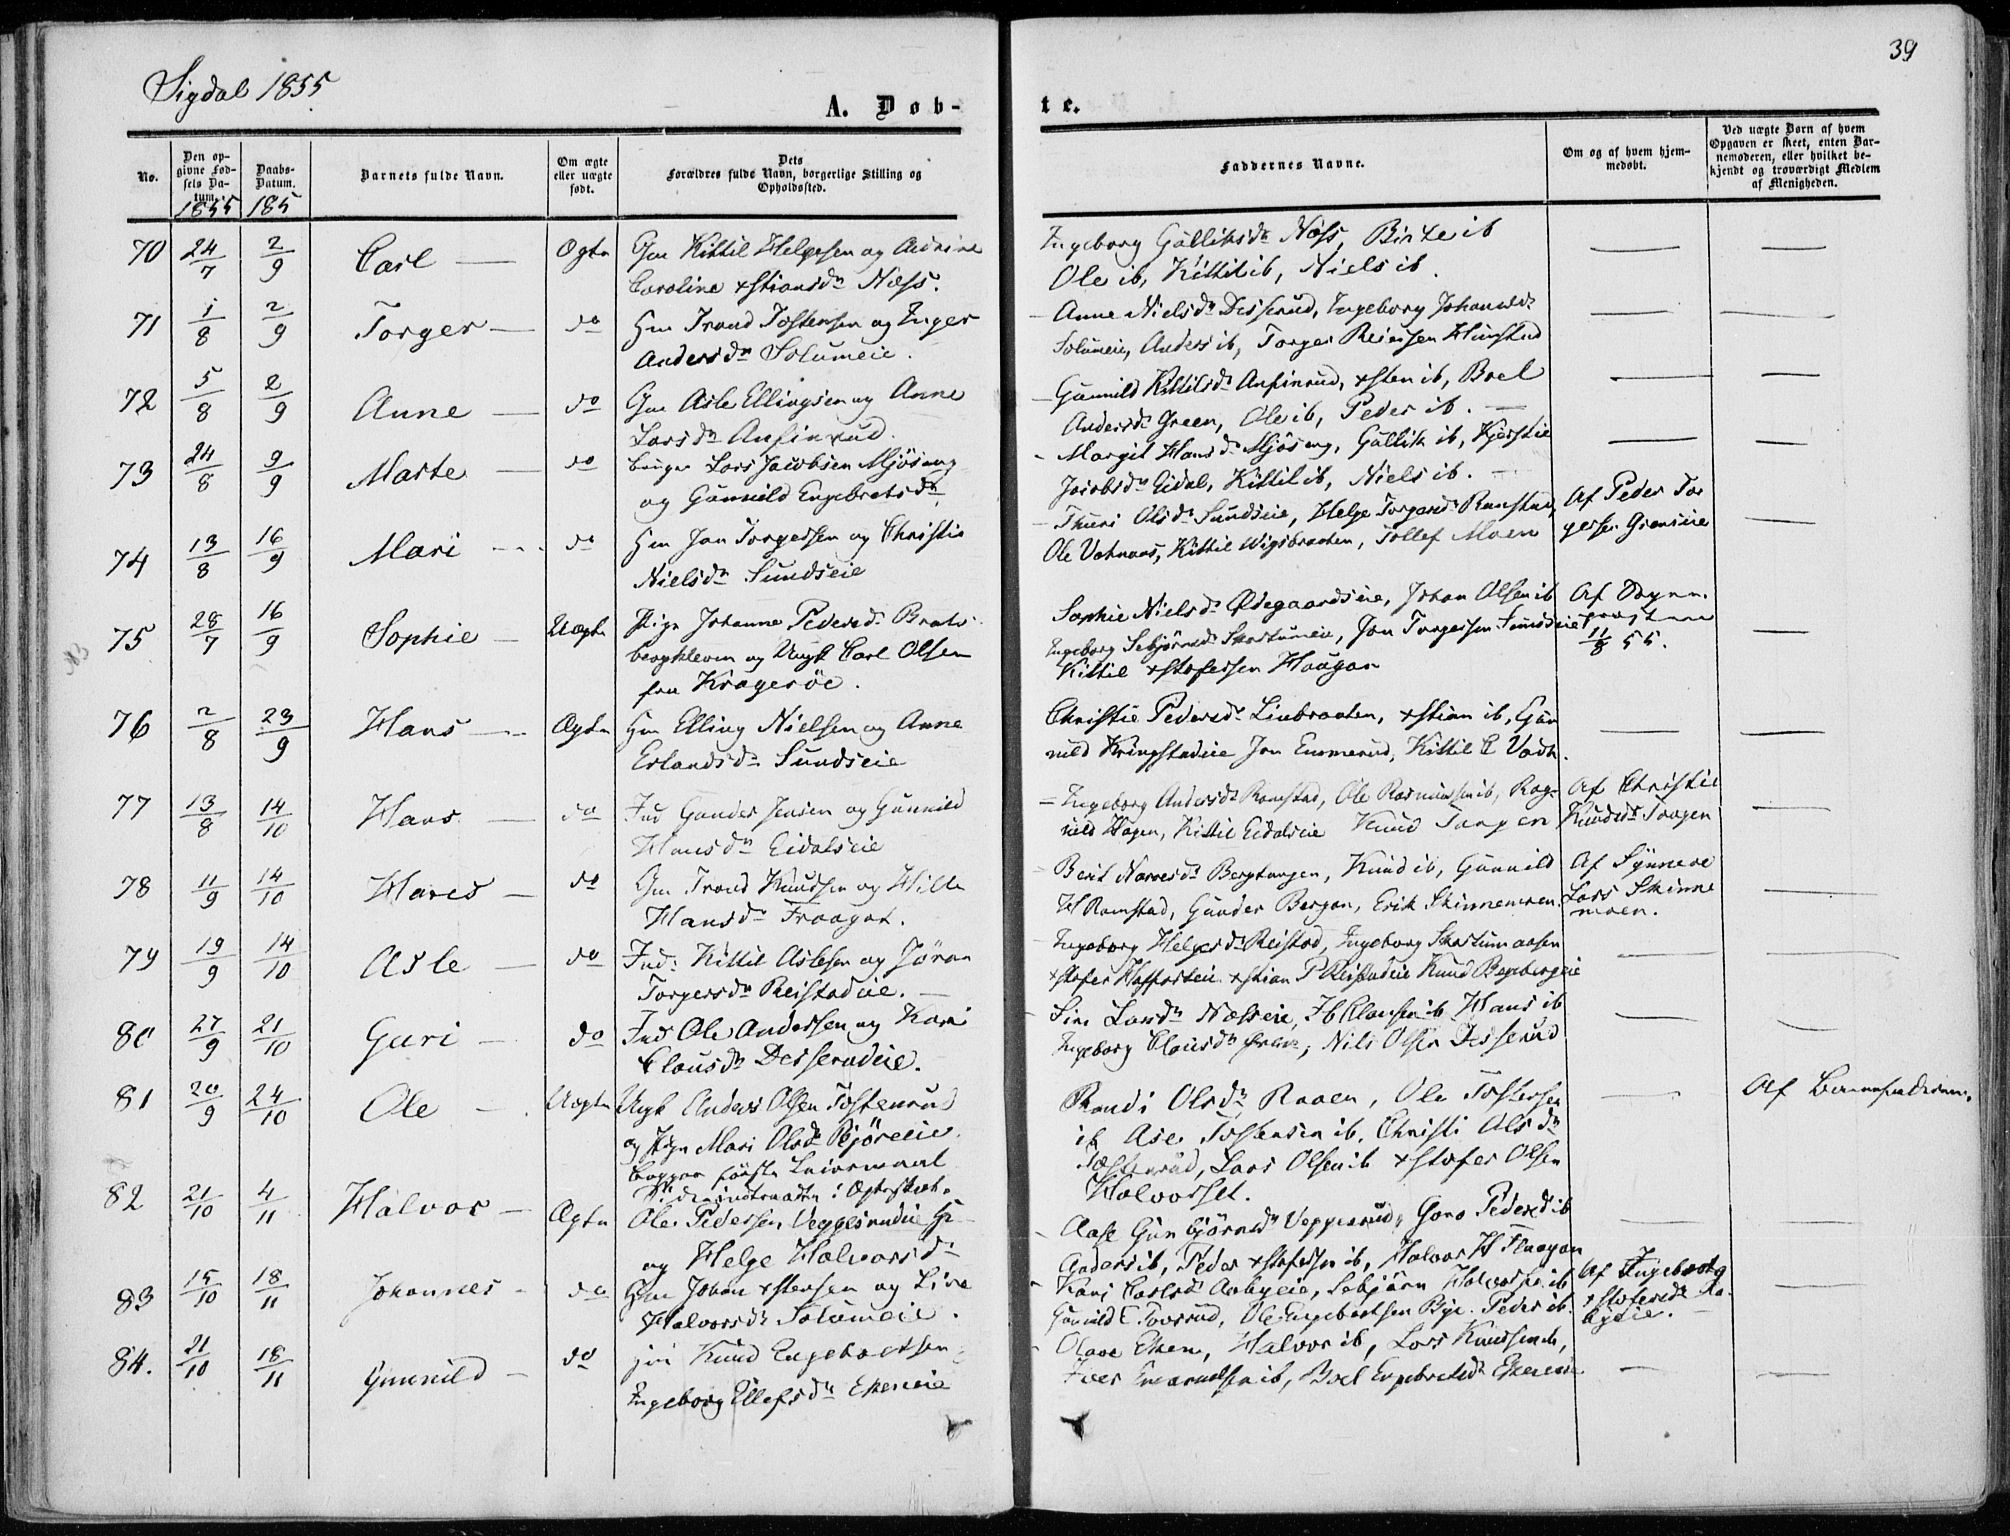 39
Sigdal 1855
A. Døb-
te.
No.
Den op-
givne Fød-
sels Da-
tum.
1855
Daabs-
Datum.
185
Barnets fulde Navn.
Om ægte
eller uægte
født.
Dets
Forældres fulde Navn, borgerlige Stilling og
Opholdssted.
Faddernes Navne.
Om og af hvem hjem-
medøbt.
Ved uægte Børn af hvem
Opgaven er skeet, enten Bar-
nemoderen, eller hvilket be-
kjendt og troværdigt Medlem
af Menigheden.
70 24/7 2/9 Carl Ægte Gm Kittil Helgesen og
Caroline xstiansdr Næss.
Ingeborg Gulliksdr Næss, Birte ib
Ole ib, Kittil ib, Niels ib.
71 1/8 2/9 Torger do Hm Trond Tostensen og Inger
Andersdr Solumeie.
Anne Nielsdr Desserud, Ingeborg
Solumeie, Anders ib, Torger
72 5/8 2/9 Anne do Gm Asle Ellingsen og Anne
Larsdr Anfinrud.
Gunnild Kittilsdr Anfinrud, xsten ib, Boel
Andersdr Green, Ole ib, Peder ib.
73 24/8 9/9 Marte do Lars Jacobsen Mjøseng
og Gunnild Engebretsdr
Margit Hansdr Mjøseng, Gullik ib, Kjerstie
Jacobsdr Eidal, Kittil ib, Niels ib.
74 13/8 16/9 Mari do Hm Jan Torgersen og Christie
Nielsdr Sundseie
Thuri Olsdr Sundseie, Helge Torgersdr Ramstad,
Ole Vatnaas, Kittil Wigsbraaten, Tollef Moen
Af Peder Tor
gersen Grenseie
75 28/7 16/9 Sophie Uægte Pige Johanne Pedersdr Brats-
bergkleven og Ungk Carl Olsen
fra Kragerøe.
Sophie Nielsdr Ødegaardseie, Johan Olsen ib
Ingeborg Sebjørnsdr Skartumeie, Jon Torgersen Sundseie
Kittil xstofersen Haugan
Af
11/8 55.
76 2/8 23/9 Hans Ægte Hm Elling Nielsen og Anne
Erlandsdr Sundseie
Christie Pedersdr Liebraaten, xstian ib, Gun
nild Kringstadeie Jon Enmerud, Kittil E
77 13/8 14/10 Hans do Ind Gunder Jensen og Gunnild
Hansdr Eidalseie
Ingeborg Andersdr Ramstad, Ole Rasmussen ib, Rag-
nild Hagen, Kittil Eidalseie Knud Tangen
Af Christie
Knudsdr Tangen
78 11/9 14/10 Hans do Gm Trond Knudsen og Hille
Hansdr Fraaget.
Berit Narvesdr Bergtangen, Knud ib, Gunnild
H Ramstad, Gunder Bergan, Erik Skinnemoen
Af Synneve
Lars Skinne
moen.
79 19/9 14/10 Asle do Ind: Kittil Aslesen og Jøran
Torgersdr Reistadeie.
Ingeborg Helgesdr Reistad, Ingeborg Skartumaasen
xstofer xstian P Reistadeie Knud
80 27/9 21/10 Guri do Ind Ole Andersen og Kari
Clausdr Desserudeie.
Siri Larsdr Næsseie, H Clausen ib Hans ib
Ingeborg Clausdr Nils Olsen Desserud
81 20/9 24/10 Ole Uægte Ungk Anders Olsen Tostenrud
og Pige Mari Olsdr
Begges første Leiermaal
Randi Olsdr Raaen, Ole Tostensen
ib Ase Tostensen ib, Christi Olsdr
Tostenrud, Lars Olsen ib xstofer Olsen
Halvorset.
Af Barnefaderen.
82 21/10 4/11 Halvor Ægte Ole Pedersen Veggesrudeie
og Helge Halvorsdr
Aase Gunbjørnsdr Veggesrud, Goro Pedersdr ib
Anders ib, Peder xstofersen ib, Halvor H Flaagan
83 15/10 18/11 Johannes do Hm Johan xstensen og Live
Halvorsdr Solumeie.
Kari Carlsdr Aabyeie, Sebjørn Halvorsen ib
Gunnild C Toverud, Ole Engebretsen Bye. Peder ib.
Af Ingeborg
xstofersdr Aa-
byeie.
84. 21/10 18/11 Gunnild do Knud Engebretsen
Ingeborg Ellefsdr Ekereie
Olave Eken, Halvor ib, Lars Knudsen ib,
Iver ib, Boel Engebretsdr Ekereeie